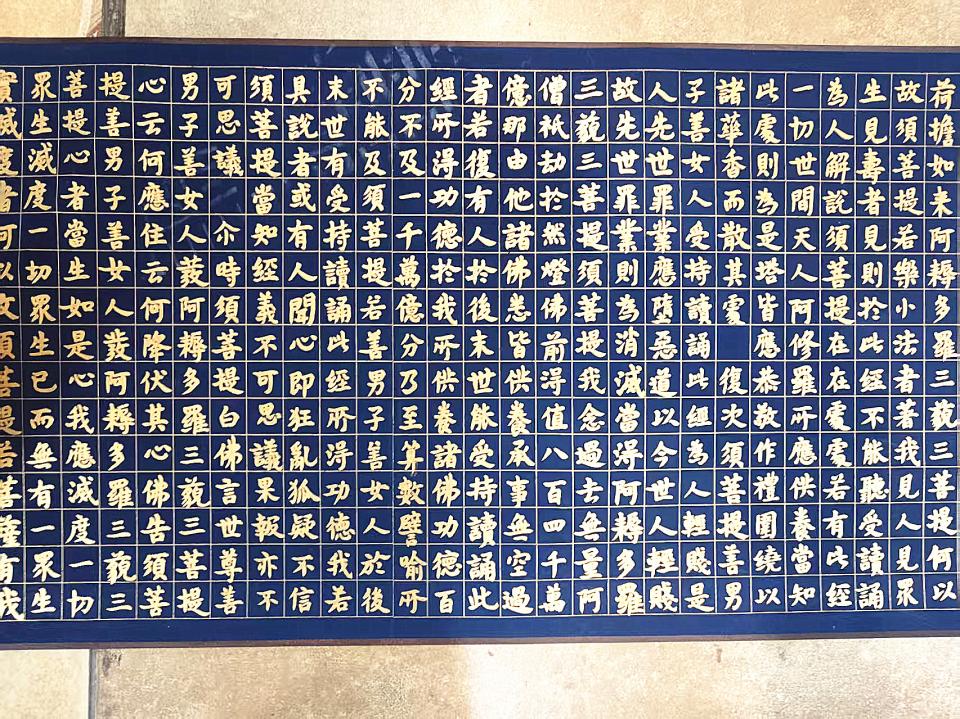 荷擔如来阿耨多羅三藐三菩提何以
故須菩提若樂小法者著我見人見眾
生見壽者見則於此經不能聽受讀誦
為人解說須菩提在在處處若有此經
一切世間天人阿修羅所應供養當知
此處則為是塔皆應恭敬作禮圍繞以
諸華香而散其處 復次須菩提善男
子善女人受持讀誦此經為人輕賤是
人先世罪業應墮惡道以今世人輕賤
故先世罪業則為消滅當淂阿耨多羅
三藐三菩提須菩提我念過去無量阿
僧祇劫於然燈佛前淂值八百四千萬
億那由他諸佛悉皆供養承事無空過
者若復有人於後末世能受持讀誦此
經所淂功德於我所供養諸佛功德百
分不及一千萬億分乃至算數譬喻所
不能及須菩提若善男子善女人於後
末世有受持讀誦此經所淂功德我若
具說者或有人聞心即狂亂狐疑不信
須菩提當知經義不可思議果報亦不
可思議 尒時須菩提白佛言世尊善
男子善女人發阿耨多羅三藐三菩提
心云何應住云何降伏其心佛告須菩
提善男子善女人發阿耨多羅三藐三
菩提心者當生如是心我應滅度一切
眾生滅度一切眾生已而無有一眾生
實滅度者何以故須菩提若菩薩有我